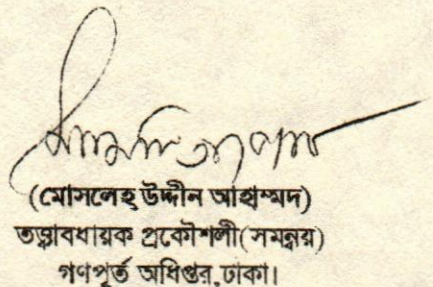 (মোসলেহ্ উদ্দীন আহাম্মদ)
তত্ত্বাবধায়ক প্রকৌশলী(সমন্বয়)
গণপূর্ত অধিপ্তর,ঢাকা।